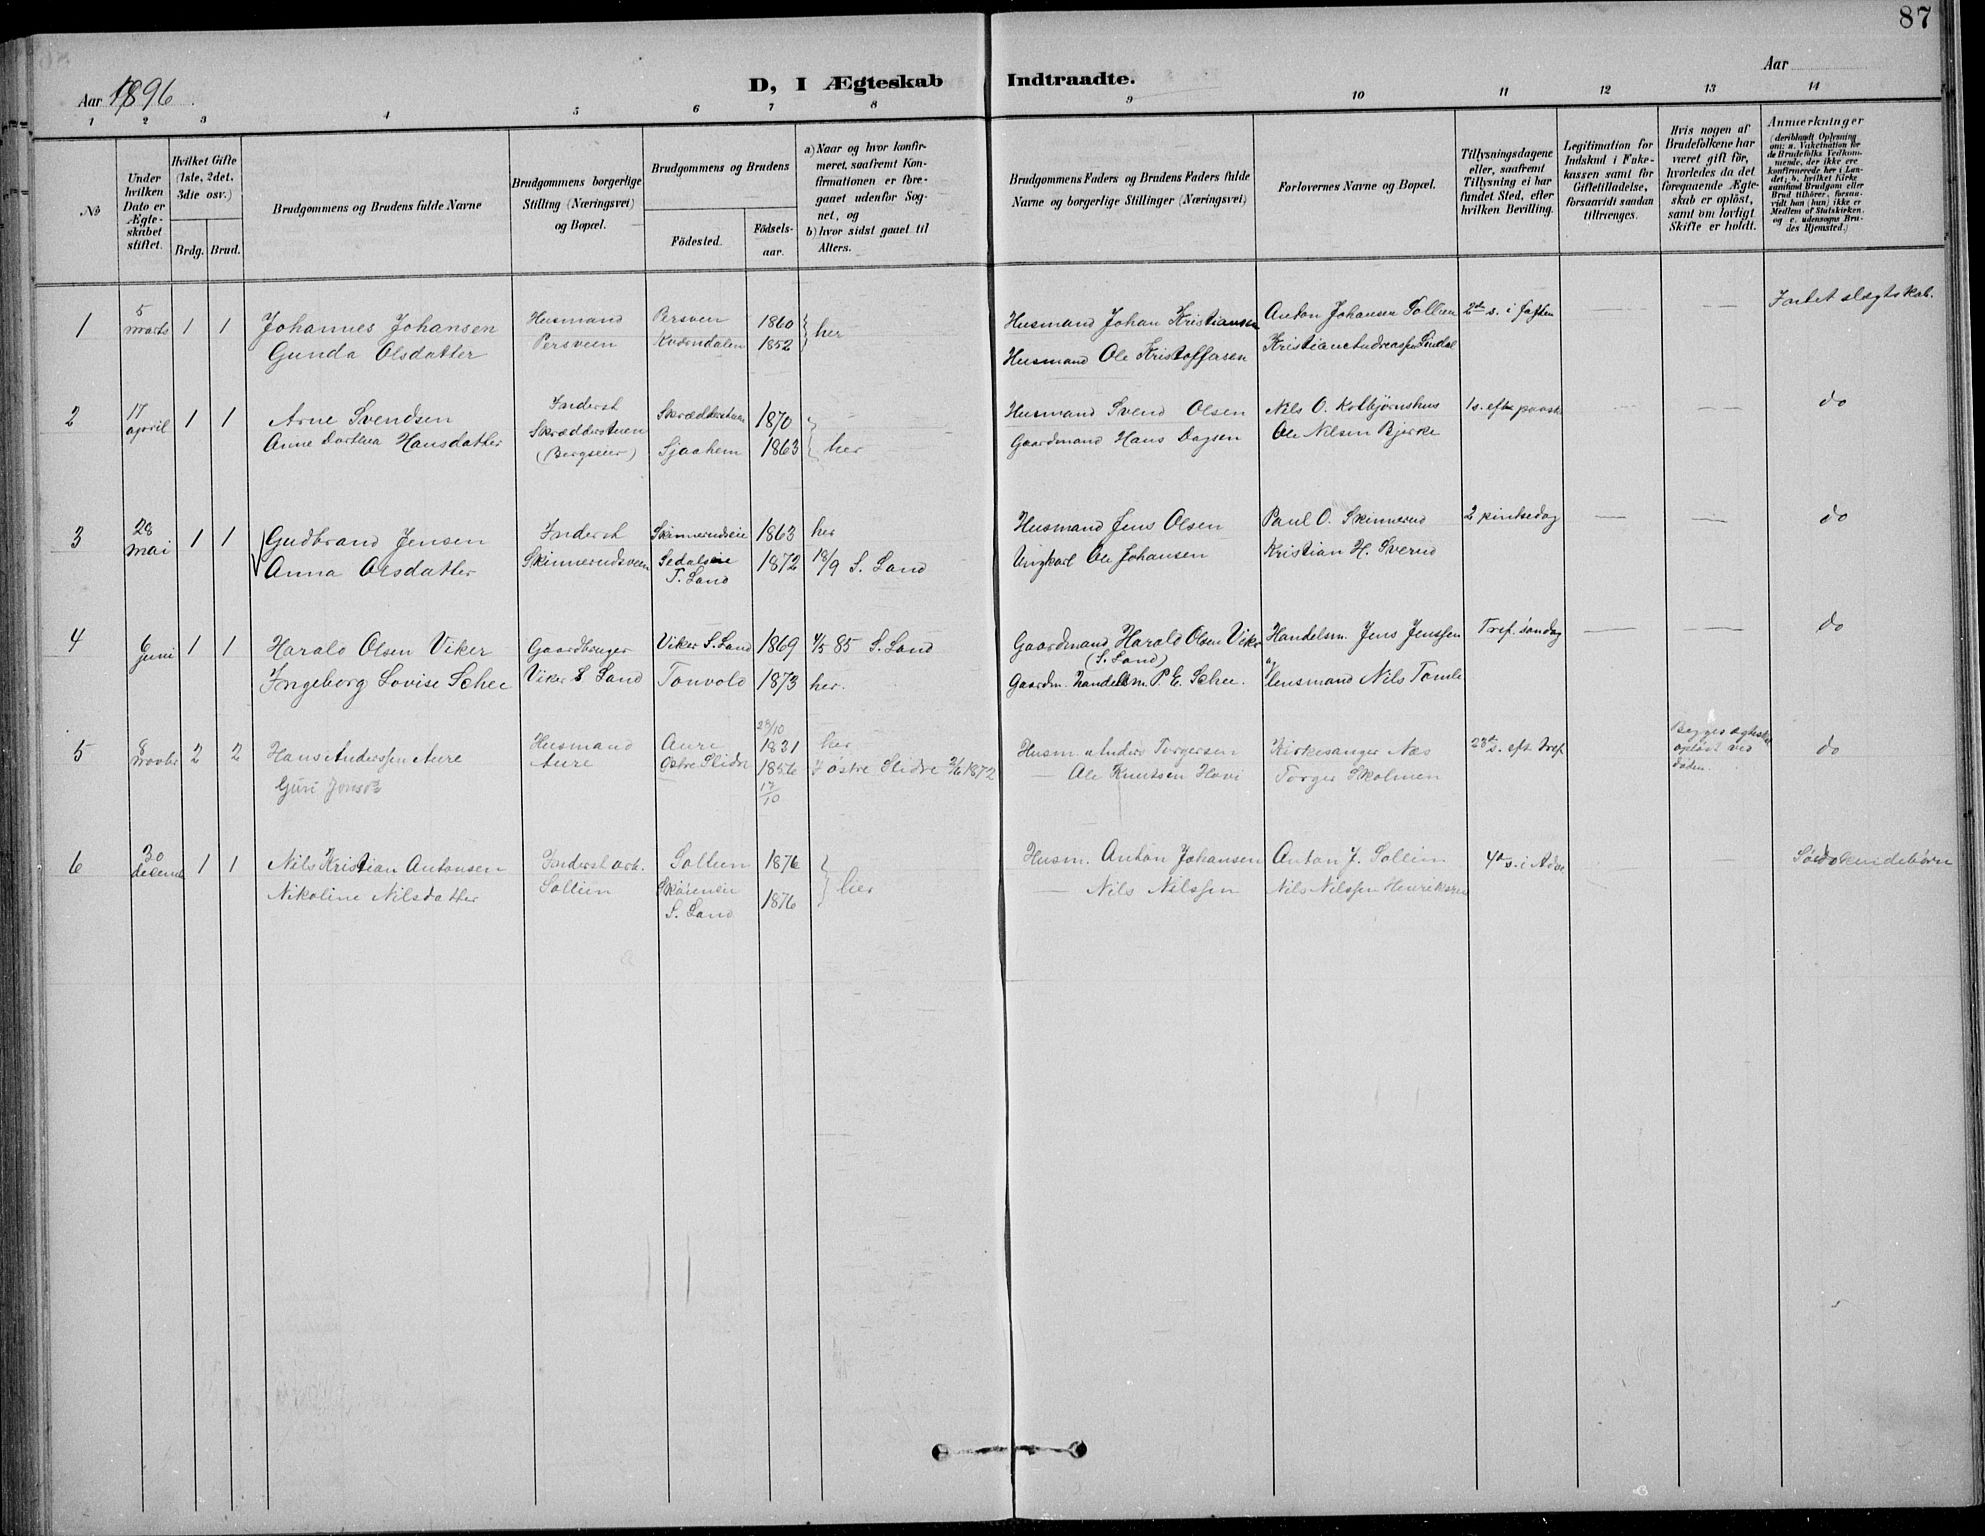 87
Aar 1896.
D, I Ægteskab Indtraadte.
Aar
1 2 3 4 5 6 7 8 9 10 11 12 13 14
No
Under hvilken Dato er Ægteskabet stiftet.
Hvilket Gifte (1ste, 2det, 3die osv.)
Brdg. Brud.
Brudgommens og Brudens fulde Navne
Brudgommens borgerlige Stilling (Næringsvei) og Bopæl.
Brudgommens og Brudens
Fødested.
Fødselsaar.
a) Naar og hvor konfirmeret, saafremt Konfirmationen er foregaaet udenfor Sognet, og
b) hvor sidst gaaet til Alters.
Brudgommens Faders og Brudens Faders fulde Navne og borgerlige Stillinger (Næringsvei)
Forlovernes Navne og Bopæl.
Tillysningsdagene eller, saafremt Tillysning ei har fundet Sted, efter hvilken Bevilling.
Legitimation for Indskud i Enkekassen samt for Giftetilladelse, forsaavidt saadan tiltrænges.
Hvis nogen af Brudefolkene har været gift før, hvorledes da det foregaaende Ægteskab er opløst, samt om lovligt Skifte er holdt.
Anmærkninger
(deriblandt Oplysning om: a. Vakcination for de Brudefolks Vedkommende, der ikke ere konfirmerede her i Landet, b. hvilket Kirkesamfund Brudgom eller Brud tilhører, forsaavidt han (hun) ikke er Medlem af Statskirken, og c. udensogns Brudes Hjemsted.)
1 5 marts 1 1 Johannes Johansen Husmand Persveen 1860 her Husmand Johan Kristiansen Anton Johansen Sollien 2den s. i fasten — — Intet slægtskab.
Gunda Olsdatter Persveen Kværndalen 1852 Husmand Ole Kristoffersen Kristian Andreassen Lindal
2 17 april 1 1 Arne Svendsen Inderst Skrædderstuen 1870 her Husmand Svend Olsen Nils O. Kolbjørnshus 1 s. efter paaske — — do
Anne Dorthea Hansdatter Skrædderstuen (Bergseier) Sjaahem 1863 Gaardmand Hans Dagsen Ole Nilsen Bjerke
3 28 mai 1 1 Gudbrand Jensen Inderst Skinnerudseie 1863 her Husmand Jens Olsen Paul O. Skinnerud 2 pintsedag — — do
Anna Olsdatter Skinnerudsveen Sedalseie T. Land 1872 18/9 S. Land Ungkarl Ole Johansen Kristian H. Sverud
4 6 juni 1 1 Harald Olsen Viker Gaardbruger Viker S. Land 1869 4/5 85 S. Land Gaardmand Harald Olsen Viker (S. Land) Handelsm. Jens Jenssen Tref. søndag — — do
Ingeborg Lovise Schee Viker S. Land Tonvold 1873 her. Gaardm. Handelsm. P. E. Schee. Lensmand Nils Tomle
5 8 novbr 2 2 Hans Anderssen Aure Husmand Aure 28/10 1831 her Husm. Anders Torgersen Kirkesanger Næs 23de s. eft. tref. Begges ægteskab opløst ved døden. do
Guri Jonsdr Aure Østre Slidre 1856 17/10 Østre Slidre 2/6 1872 — Ole Knutsen Hovi Torger Skolmen
6 30 decemb 1 1 Nils Kristian Antonsen Inderst arb. Sollien 1876 her Husm. Anton Johansen Anton J. Sollien 4de s. i Adve Sødskendebørn
Nikoline Nilsdatter Sollien S. Land 1876 — Nils Nilssen Nils Nilssen Henriksen